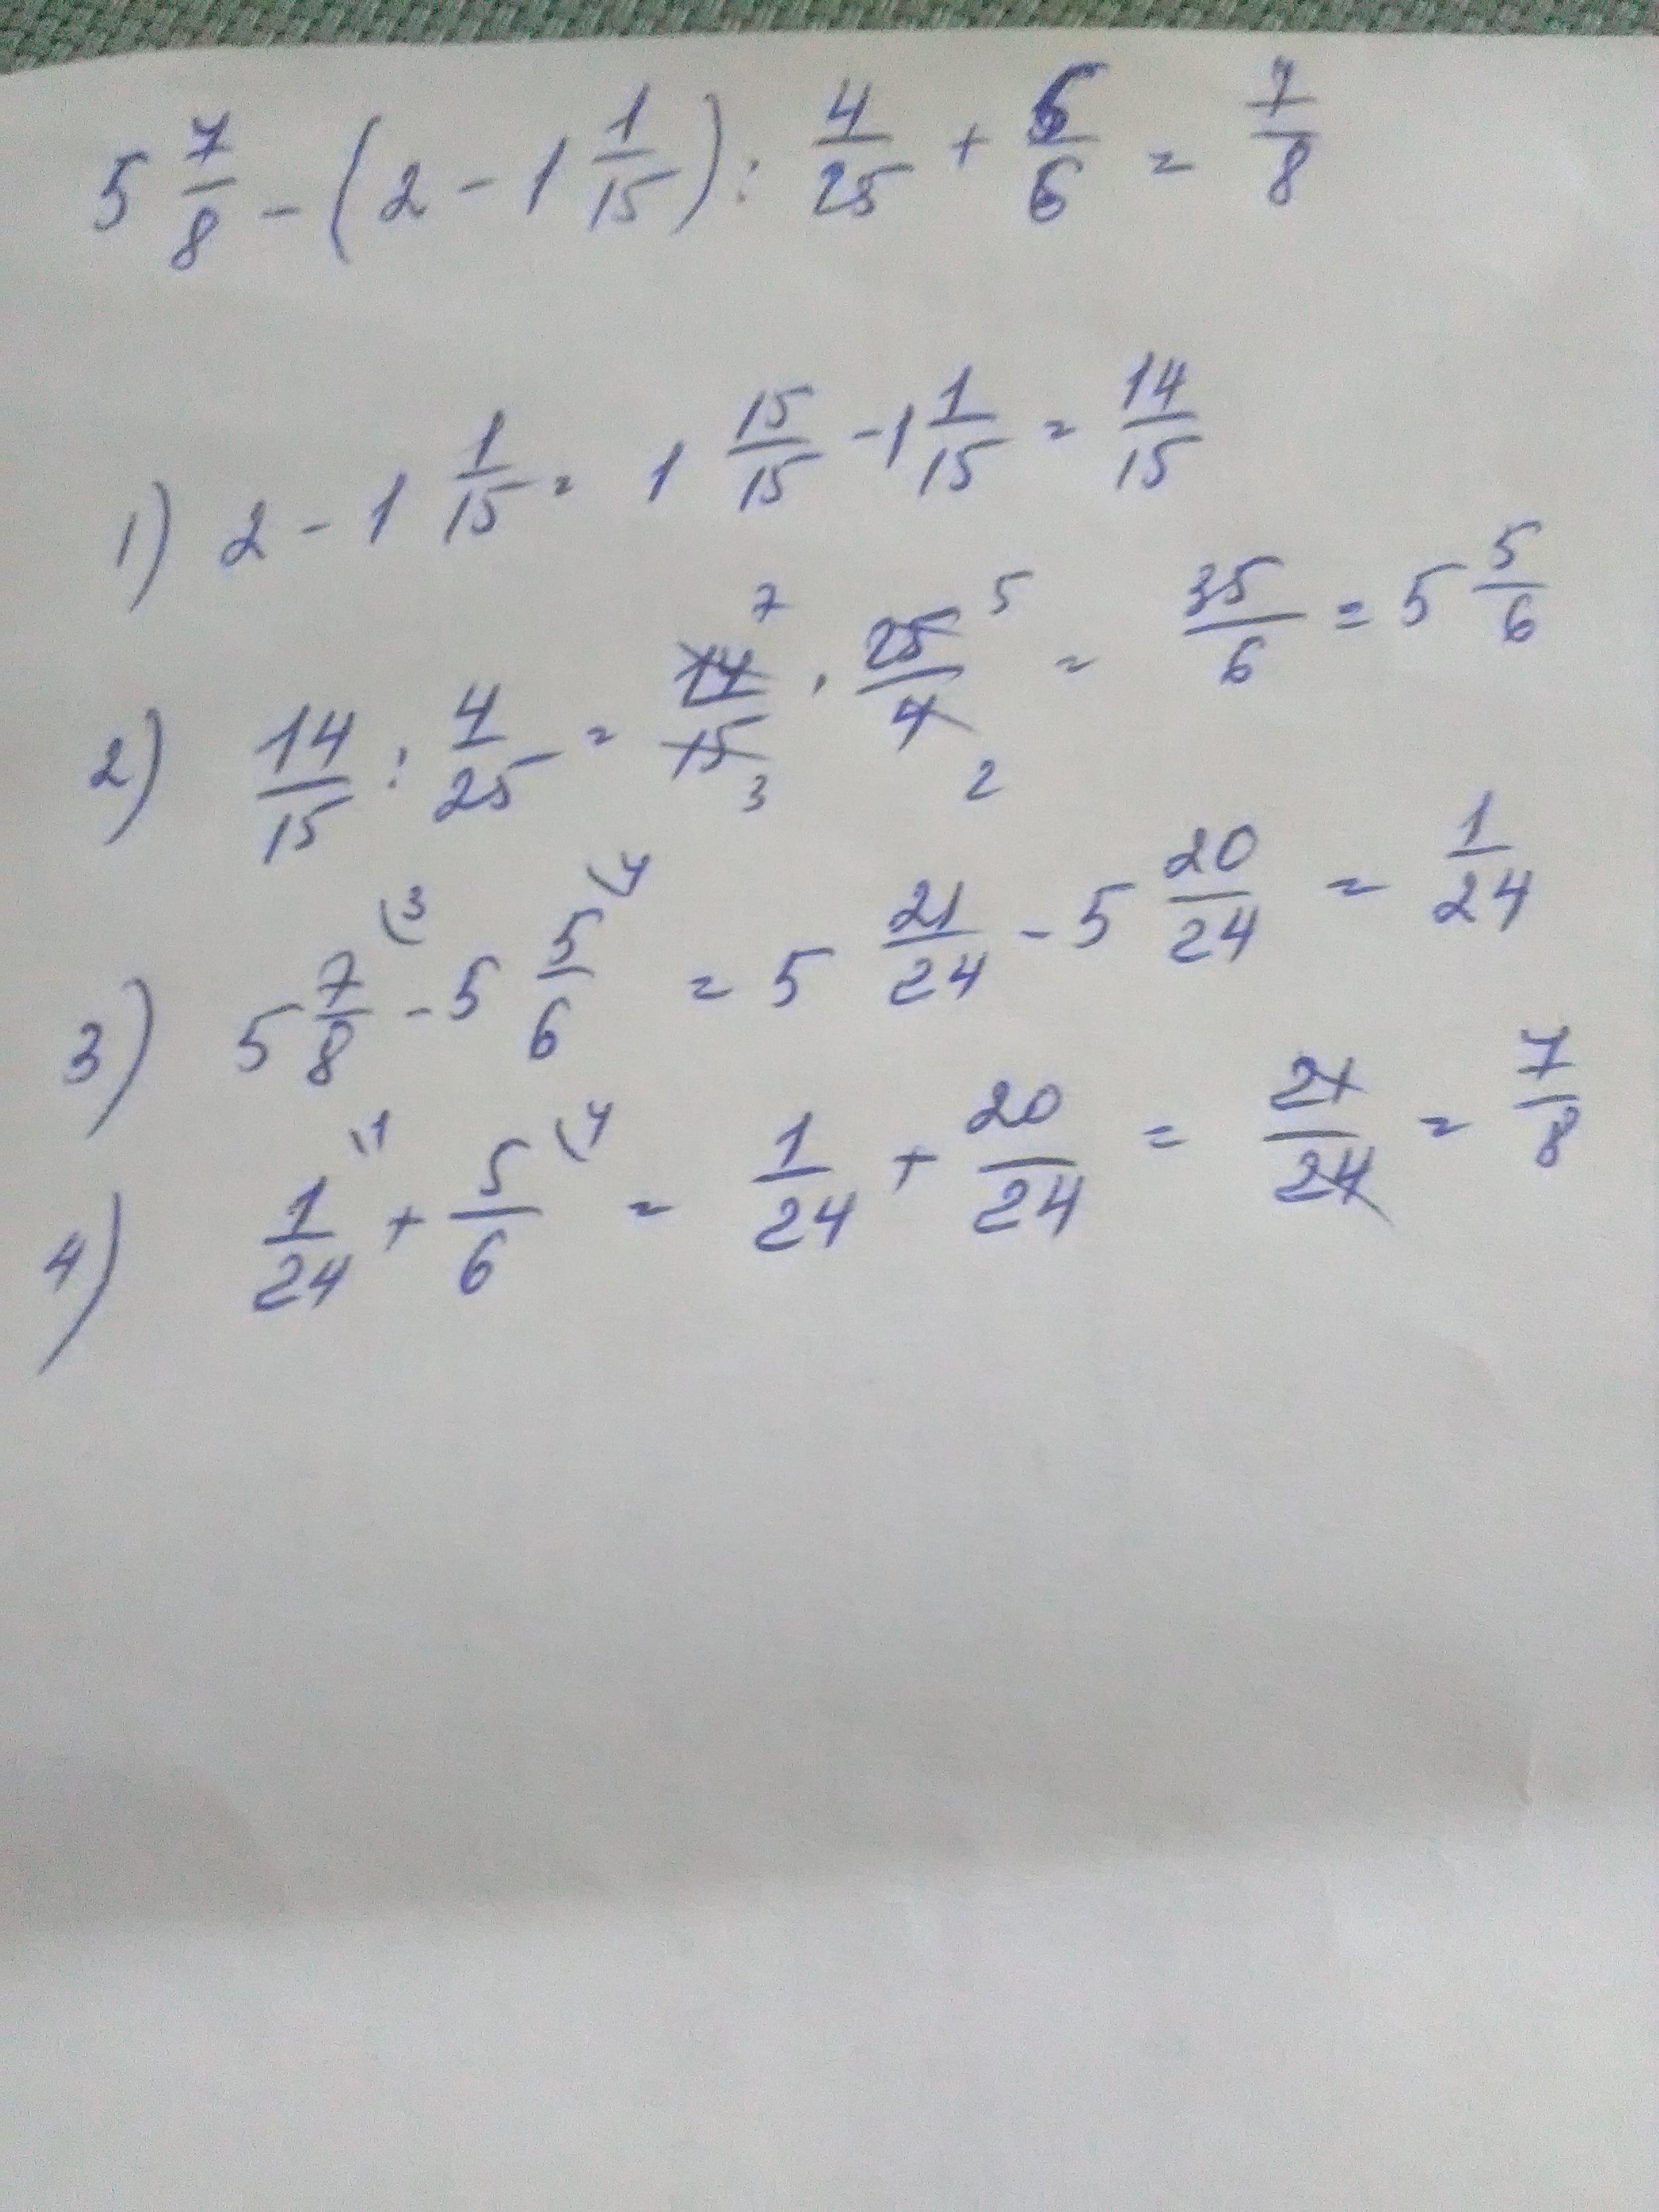 5 7/8 - (2 - 1 1/15) : 4/25 + 5/6 = 7/8
1) 2 - 1 1/15 = 1 15/15 - 1 1/15 = 14/15
2) 14/15 : 4/25 = 14/15 7 3 · 25/4 5 2 = 35/6 = 5 5/6
3) 5 7/8 \3 - 5 5/6 \4 = 5 21/24 - 5 20/24 = 1/24
4) 1/24 \1 + 5/6 \4 = 1/24 + 20/24 = 21/24 = 7/8